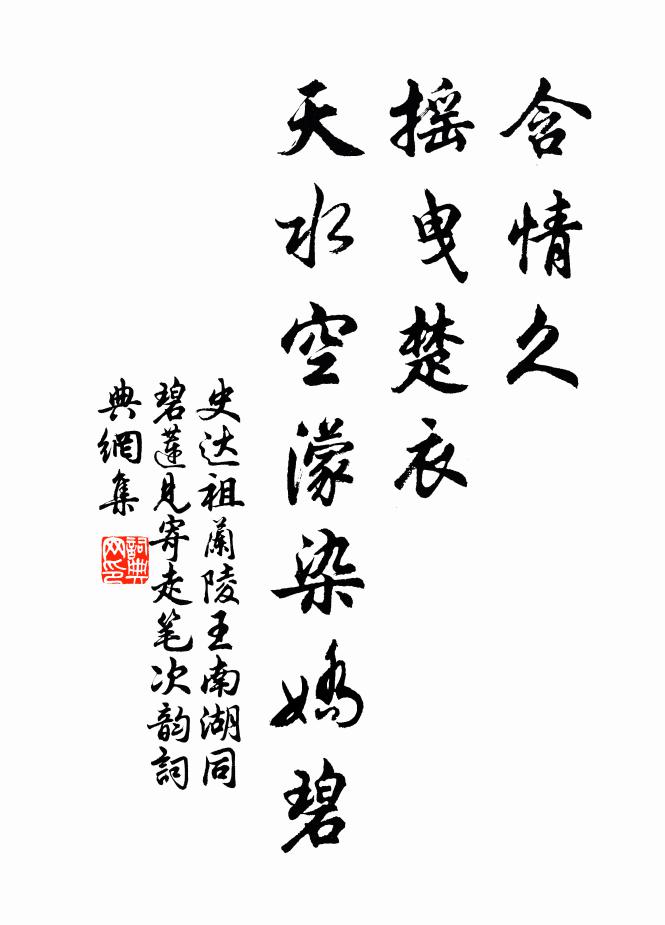 含情久
摇曳楚衣
天水空濛染娇碧
史达祖蘭陵王南湖同
碧蓮见寄走笔次韵詞
典網集
詞典
网印